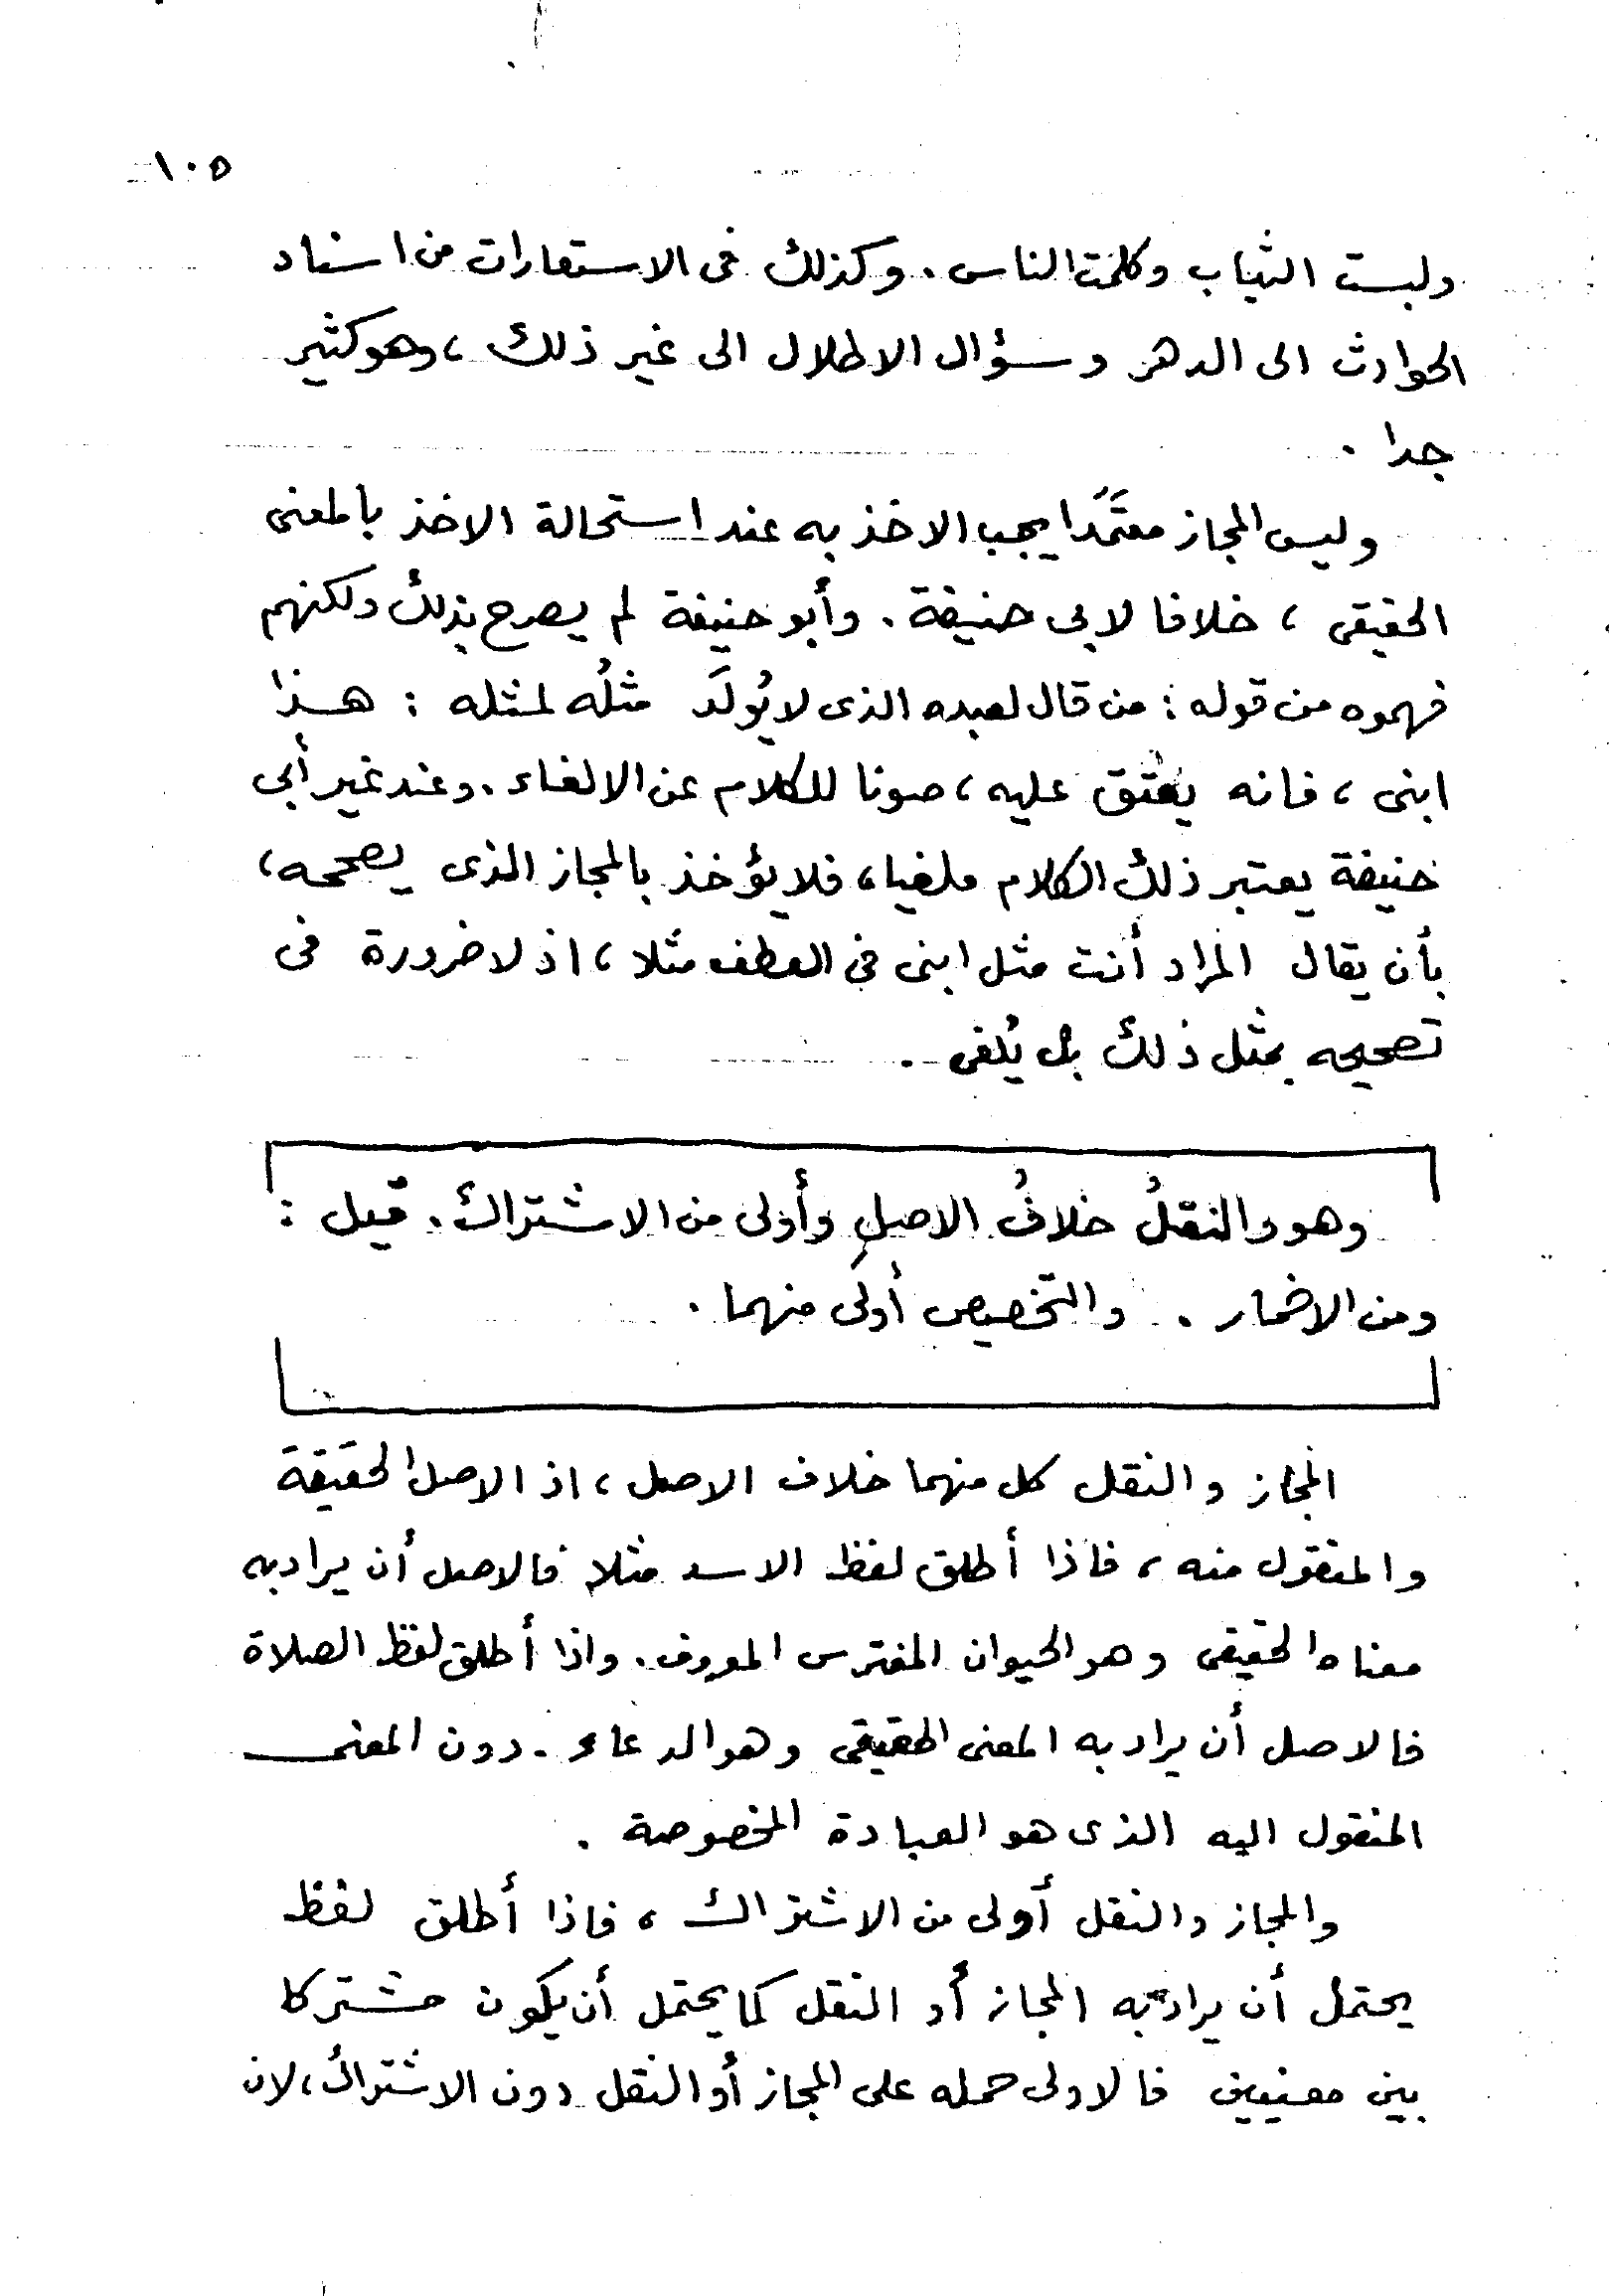 ١٠٥
ولبست الثياب وكلمت الناس. وكذلك فى الاستعارات من اسناد
الحوادث الى الدهر وسؤال الاطلال الى غير ذلك ، وهو كثير
جدا .
وليس المجاز معتمَدًا يجب الاخذ به عند استحالة الاخذ بالمعنى
الحقيقى ، خلافا لابى حنيفة . وأبو حنيفة لم يصرح بذلك ولكنهم
فهموه من قوله : من قال لعبده الذى لا يُولَد مثلُه لمثله : هذا
ابنى ، فانه يعتق عليه ، صونا للكلام عن الالغاء . وعند غير أبى
حنيفة يعتبر ذلك الكلام ملغيا ، فلا يؤخذ بالمجاز الذى يصححه ،
بأن يقال المراد أنت مثل ابنى فى العطف مثلا ، اذ لا ضرورة فى
تصحيحه بمثل ذلك بل يُلغى .
وهو والنقلُ خلافُ الاصلِ وأولى من الاشتراك . قيل :
ومن الاضمار . والتخصيص أولى منهما .
المجاز والنقل كل منهما خلاف الاصل ، اذ الاصل الحقيقة
والمنقول منه ، فاذا أطلق لفظ الاسد مثلا فالاصل أن يراد به
معناه الحقيقى وهو الحيوان المفترس المعروف . واذا أطلق لفظ الصلاة
فالاصل أن يراد به المعنى الحقيقى وهو الدعاء . دون المعنى
المنقول اليه الذى هو العبادة المخصوصة .
والمجاز والنقل أولى من الاشتراك ، فاذا أطلق لفظ
يحتمل أن يراد به المجاز أو النقل كما يحتمل أن يكون مشتركا
بين معنيين فالاولى حمله على المجاز أو النقل دون الاشتراك ، لان